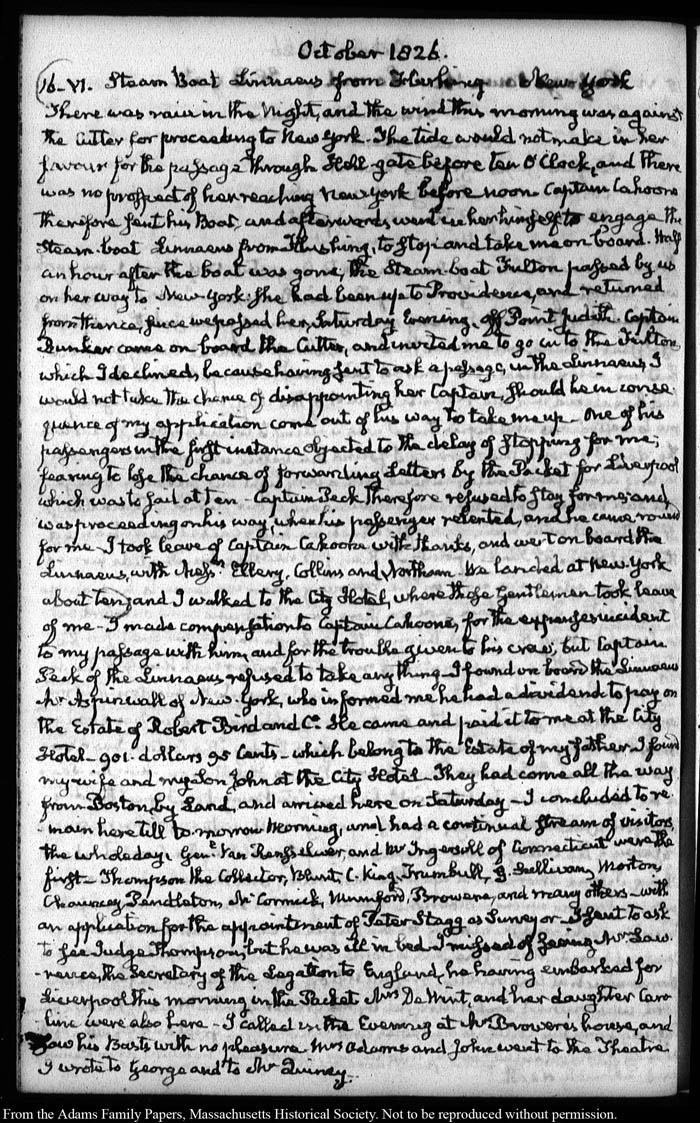 October 1826.
16. VI. Steam Boat Linnaeus from Flushing New York
There was rain in the Night, and the wind this morning was against
the Cutter for proceeding to New York. The tide would not make in her
favour for the passage through Hell-gate before ten O'Clock, and there
was no prospect of her reaching New York before noon. Captain Cahoone
therefore sent his Boat, and afterwards went in her himself to engage the
Steam-boat Linnaeus from Flushing, to stop and take me on board. Half
an hour after the boat was gone, the Steam-boat Fulton passed by us
on her way to New-York. She had been up to Providence, and returned
from thence, since we passed her, Saturday Evening, off Point Judith. Captain
Bunker came on board the Cutter, and invited me to go in to the Fulton,
which I declined, because having sent to ask a passage, in the Linnaeus, I
would not take the chance of disappointing her Captain, should he in conse-
quence of my application come out of his way to take me up. One of his
passengers in the first instance objected to the delay of stopping for me;
fearing to lose the chance of forwarding Letters by the Packet for Liverpool
which was to sail at ten - Captain Peck therefore refused to stay for me, and
was proceeding on his way, when his passenger relented, and he came round
for me - I took leave of Captain Cahoone with thanks, and went on board the
Linnaeus, with Messrs. Ellery, Collins and Northam. We landed at New York
about ten, and I walked to the City Hotel, where those Gentlemen took leave
of me - I made compensation to Captain Cahoone, for the expenses incident
to my passage with him, and for the trouble given to his crew, but Captain
Peck of the Linnaeus refused to take any thing - I found on board the Linnaeus
Mr Aspinwall of New-York, who informed me he had a dividend to pay on
the Estate of Robert Bird and Co. He came and paid it to me at the City
Hotel - 901. dollars 95 Cents - which belong to the Estate of my father - I found
my wife and my Son John at the City Hotel - They had come all the way
from Boston by Land, and arrived here on Saturday - I concluded to re-
-main here till to-morrow Morning, and had a continual stream of visitors,
the whole day. Genl Van Rensselaer, and Mr Ingersoll of Connecticut were the
first - Thompson the Collector, Blunt, C. King, Trumbull, Sullivan, Morton,
Chauncey Pendleton, McCormick, Mumford, Browere, and many others - with
an application for the appointment of Peter Stagg as Surveyor - I sent to ask
to see Judge Thompson, but he was ill in bed. I missed of seeing Mr Law-
-rence, the Secretary of the Legation to England, he having embarked for
Liverpool this morning in the Packet Mrs De Wint, and her daughter Caro-
line were also here - I called in the Evening at Mr Browere's house, and
saw his Busts with no pleasure Mrs Adams and John went to the Theatre
I wrote to George and to Mr Quincy.
From the Adams Family Papers, Massachusetts Historical Society. Not to be reproduced without permission.